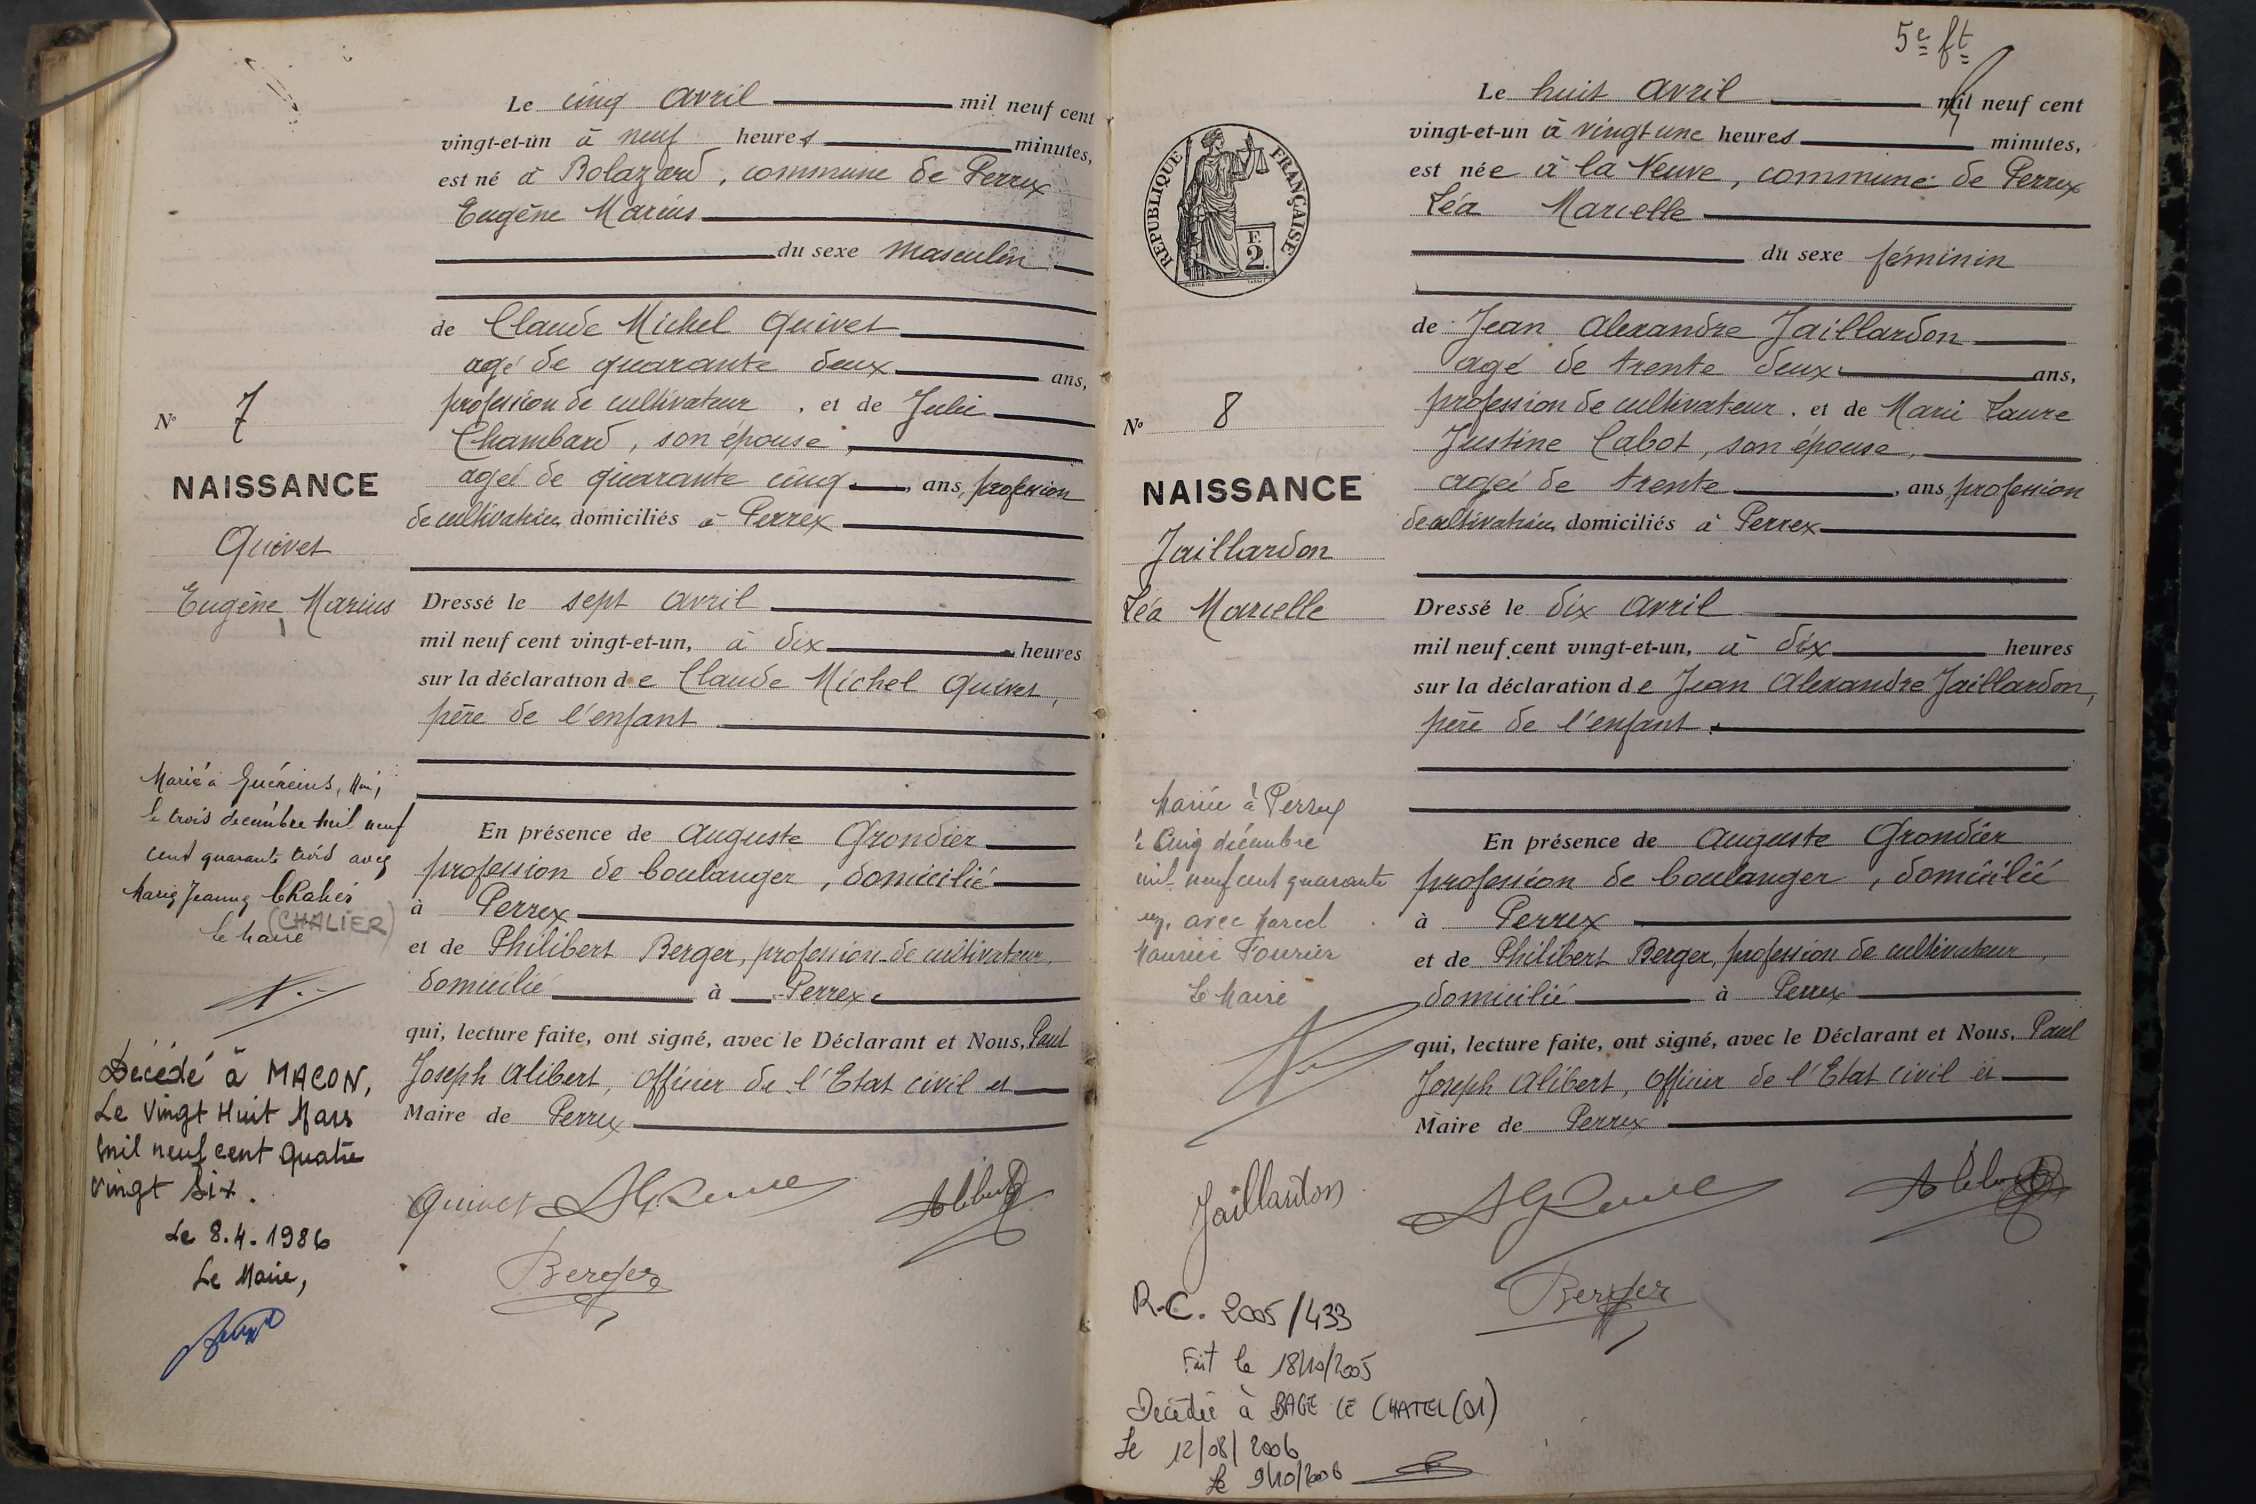 N° 7
NAISSANCE
Quivet
Eugène Marius
Marié à Guéreins, Ain,
le trois décembre mil neuf
cent quarante trois avec
Marie Jeanne Chalier
(CHALIER)
le Maire
Décédé à MACON,
Le Vingt Huit Mars
mil neuf cent Quatre
Vingt Six.
Le 8.4.1986
Le Maire,
Le cinq avril mil neuf cent
vingt-et-un à neuf heures minutes,
est né à Bolazard, commune de Perrex
Eugène Marius
du sexe masculin
de Claude Michel Quivet
agé de quarante deux ans,
profession de cultivateur, et de Julie
Chambard, son épouse,
agée de quarante cinq, ans, profession
de cultivatrice, domiciliés à Perrex
Dressé le sept avril
mil neuf cent vingt-et-un, à dix heures
sur la déclaration de Claude Michel Quivet,
père de l'enfant
En présence de Auguste Grondier
profession de boulanger, domicilié
à Perrex
et de Philibert Berger, profession de cultivateur,
domicilié à Perrex
qui, lecture faite, ont signé, avec le Déclarant et Nous, Paul
Joseph Alibert, officier de l'Etat civil et
Maire de Perrex
Quivet
Alibert
Berger
5e ft
RÉPUBLIQUE FRANÇAISE
E
2.
N° 8
NAISSANCE
Jaillardon
Léa Marcelle
Mariée à Perrex
le cinq décembre
mil neuf cent quarante
avec Marcel
Maurice Fourier
Le Maire
Le huit avril mil neuf cent
vingt-et-un à vingt une heures minutes,
est née à la Veuve, commune de Perrex
Léa Marcelle
du sexe féminin
de Jean Alexandre Jaillardon
agé de trente deux ans,
profession de cultivateur, et de Marie Laure
Justine Cabot, son épouse,
agée de trente, ans, profession
de cultivatrice, domiciliés à Perrex
Dressé le dix avril
mil neuf cent vingt-et-un, à dix heures
sur la déclaration de Jean Alexandre Jaillardon,
père de l'enfant
En présence de Auguste Grondier
profession de boulanger, domicilié
à Perrex
et de Philibert Berger, profession de cultivateur,
domicilié à Perrex
qui, lecture faite, ont signé, avec le Déclarant et Nous, Paul
Joseph Alibert, officier de l'Etat civil et
Maire de Perrex
Jaillardon
Alibert
Berger
R.C. 2005/433
Fait le 18/10/2005
Décédée à BAGE LE CHATEL (01)
Le 12/08/2006
Le 9/10/2006